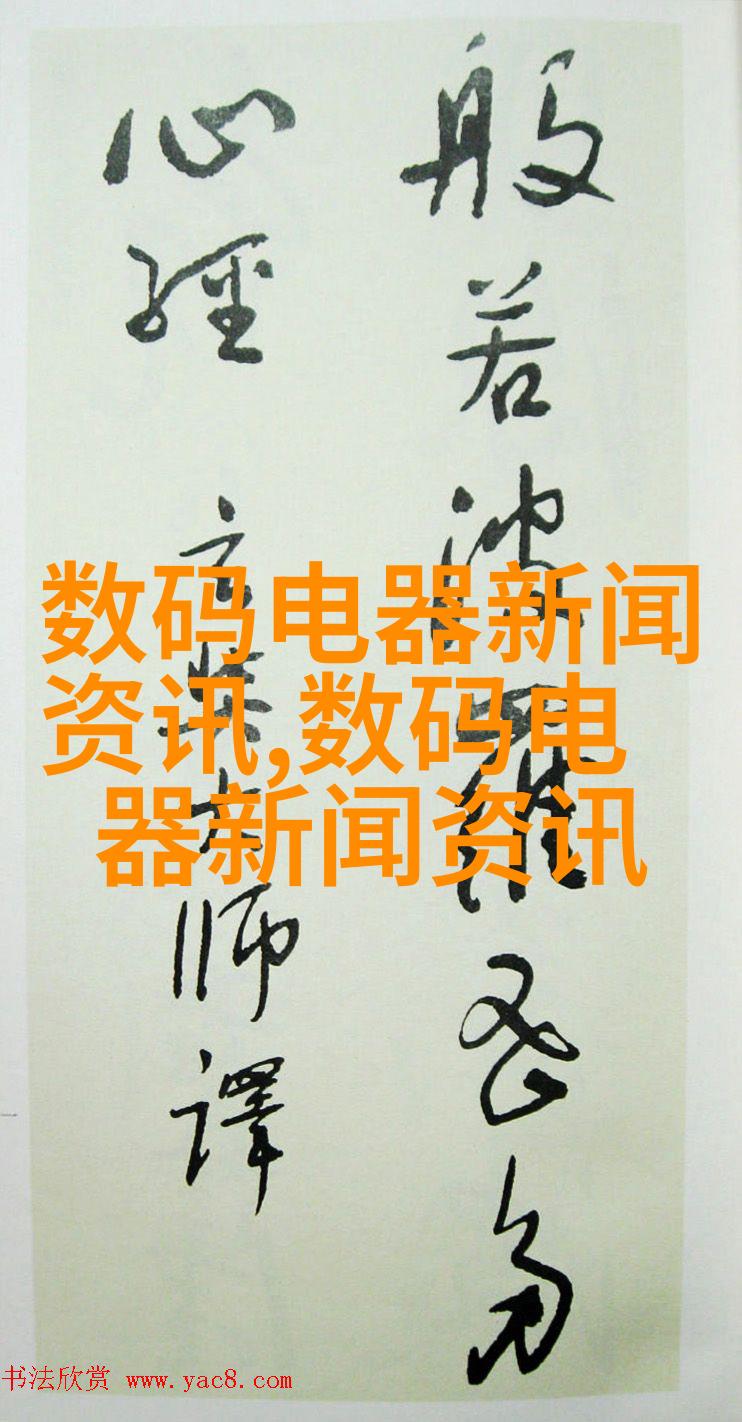 般若波羅密多
心經 玄奘大師譯
数码电器新闻
资讯,数码电
器新闻资讯
书法欣赏 www.yac8.com